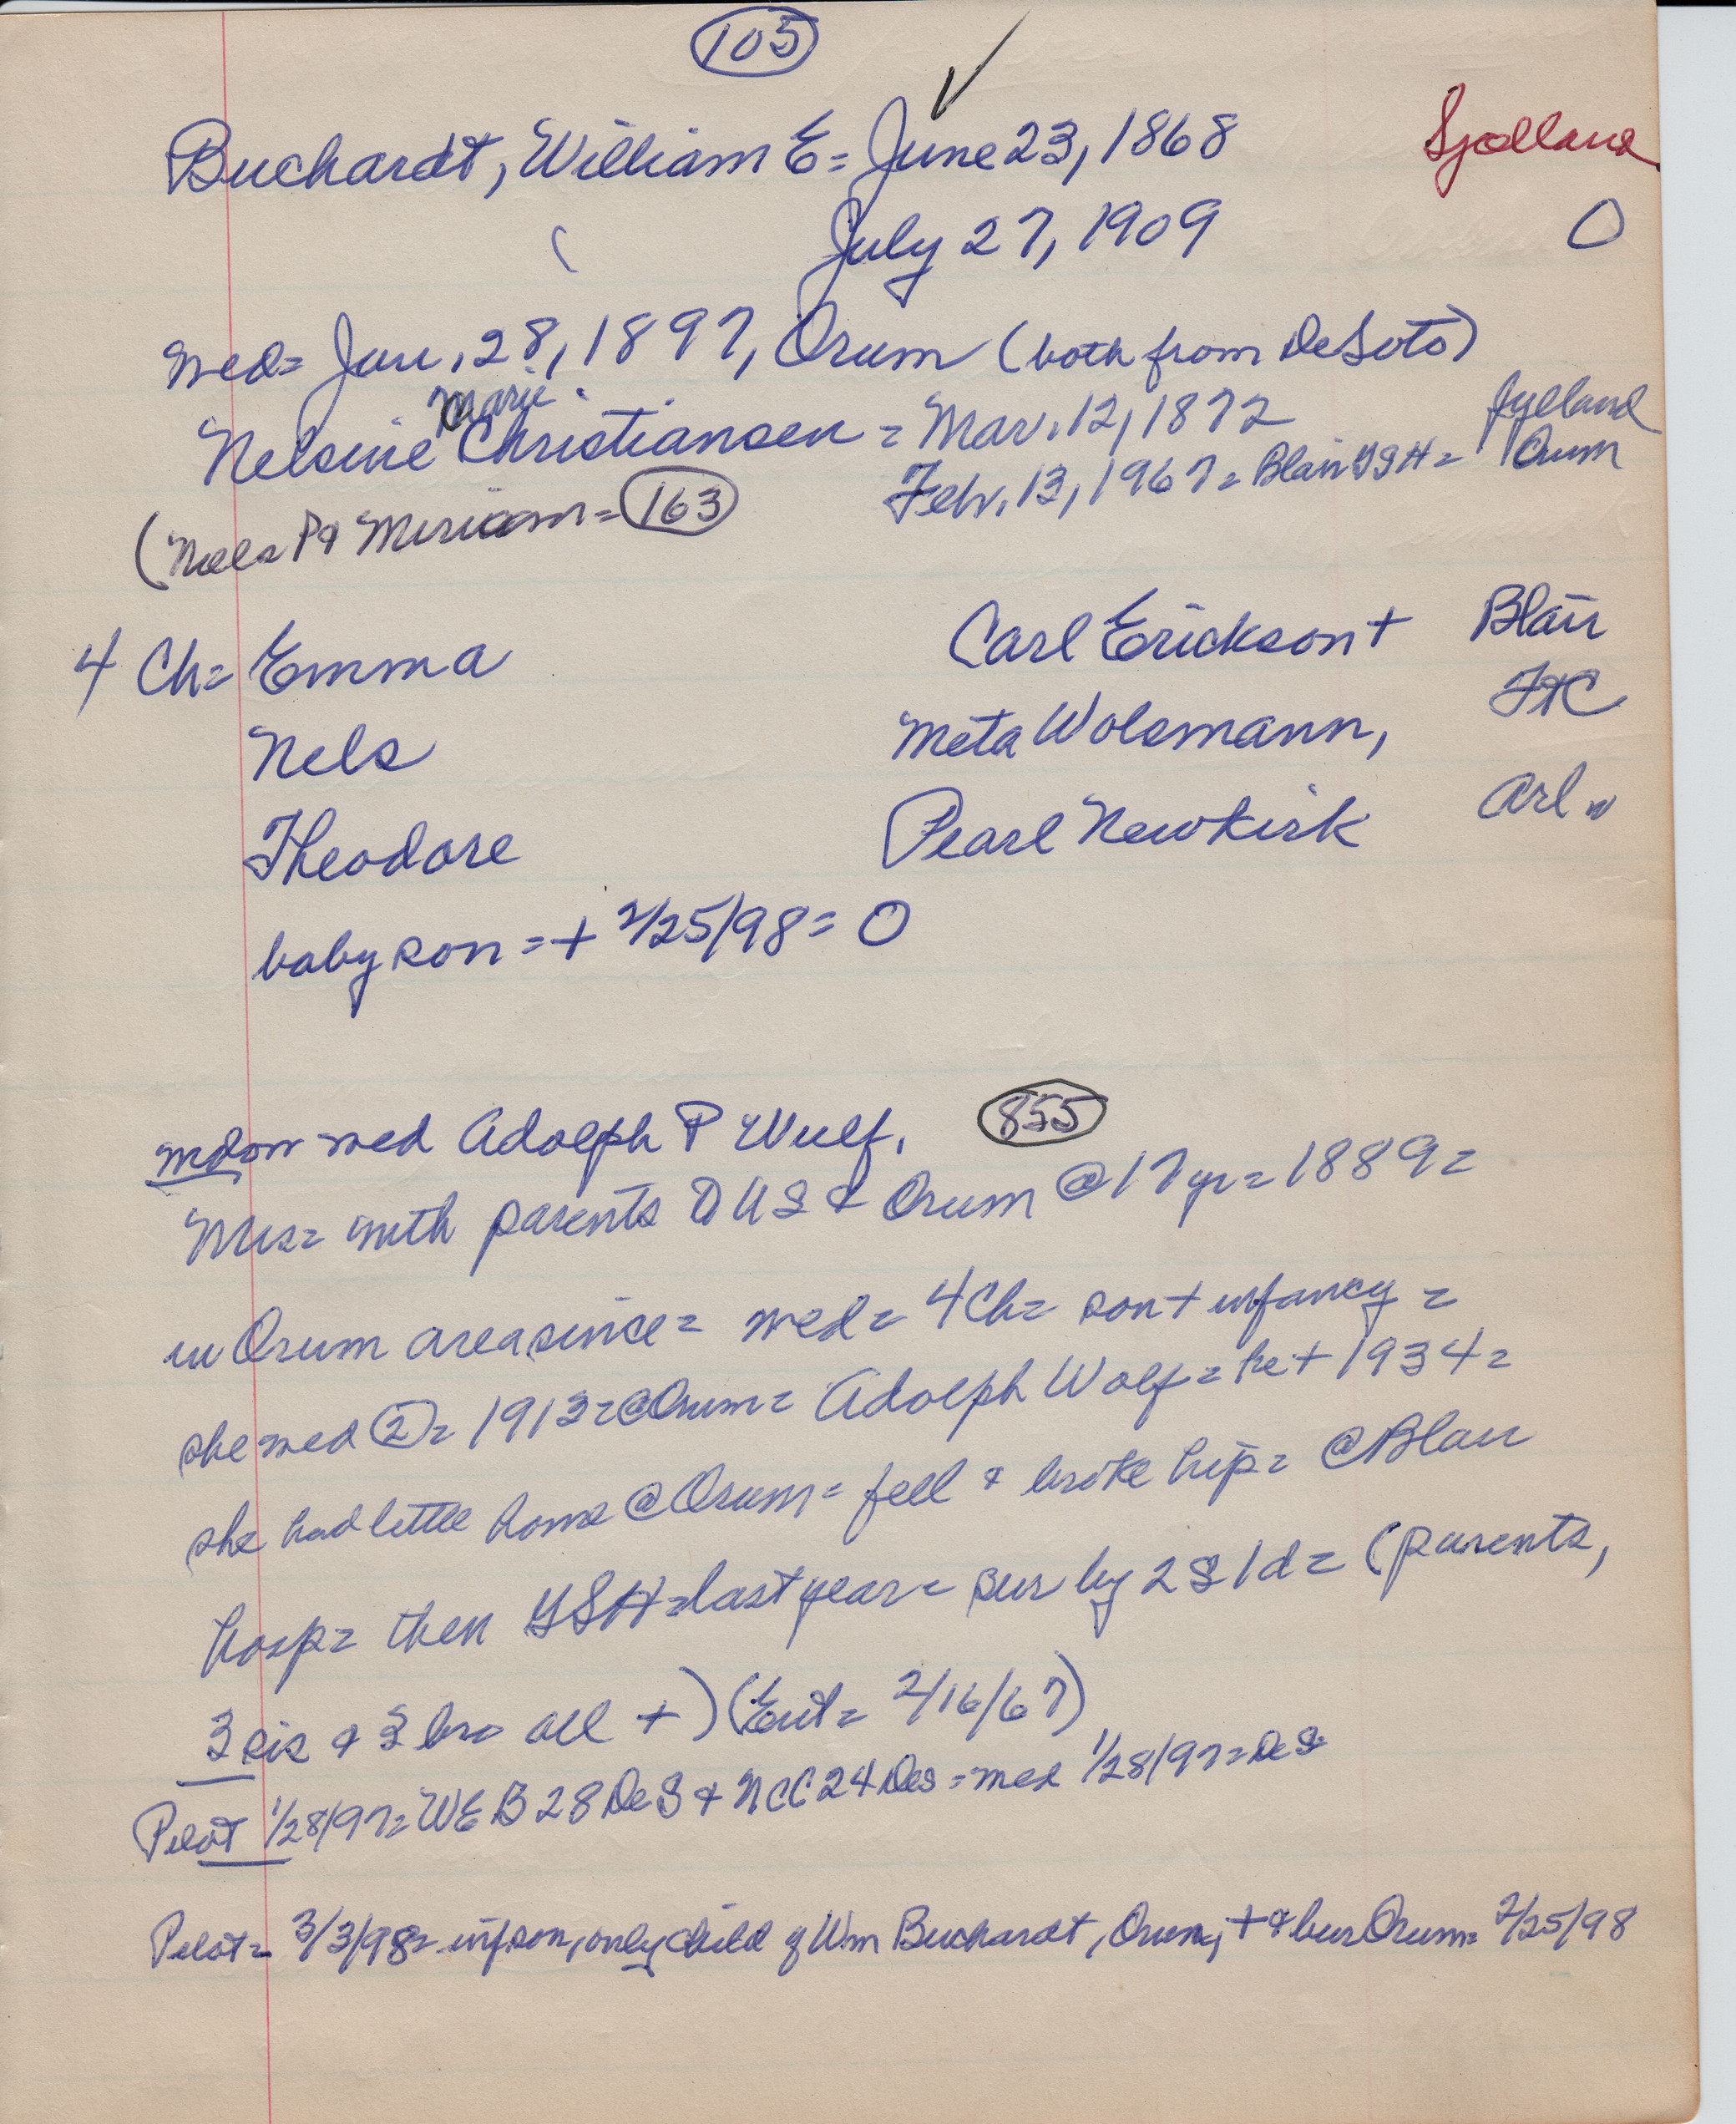 105
Buchardt, William E = June 23, 1868 Sjælland
July 27, 1909 O
med = Jan. 28, 1897, Orum (both from DeSoto)
Marie
Nelsine Christiansen = Mar. 12, 1872 Jylland
Feb. 13, 1967 = Blair GSH = Orum
(Niels P & Miriam = 163
4 Ch = Emma Carl Erickson + Blair
Nels Meta Wolsmann, FtC
Theodore Pearl Newkirk Arl
baby son = + 2/25/98 = O
med Adolph P Wulf. 855
Mrs = with parents US & Orum @ 17 yr = 1889 =
in Orum area since = med = 4 Ch = son + infancy =
she med 2 = 1913 = @ Orum = Adolph Wolf = he + 1934 =
she had little home @ Orum = fell & broke hip = @ Blair
hosp = then GSH = last year = sur by 2 S 1 d = (parents,
3 sis & 3 bro all +) (Ent = 2/16/67)
Pilot 1/28/97 = WEB 28 DeS & NCC 24 Des = med 1/28/97 = DeS
Pilot = 3/3/98 = inf son, only child of Wm Buchardt, Orum, + & bur Orum = 2/25/98